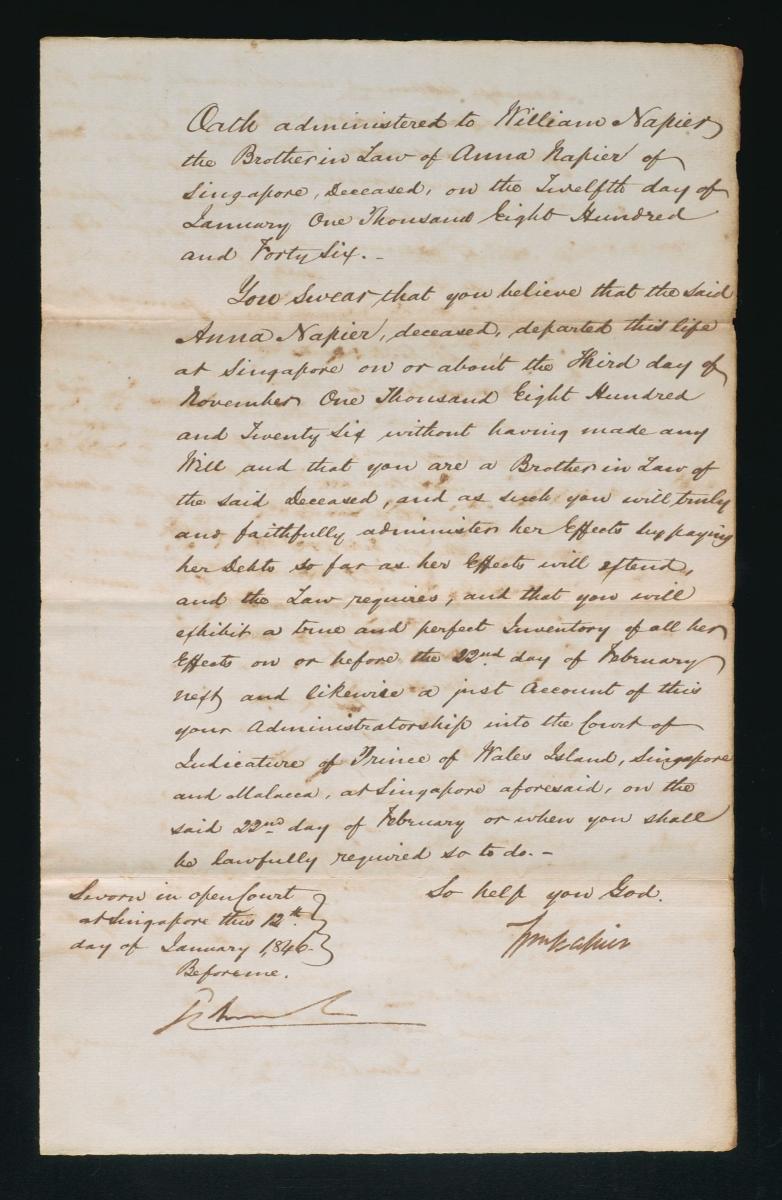 Oath administered to William Napier
the Brother in Law of Anna Napier of
Singapore, Deceased, on the Twelfth day of
January One Thousand Eight Hundred
and Forty Six. -
You Swear that you believe that the said
Anna Napier, deceased, departed this life
at Singapore on or about the Third day of
November One Thousand Eight Hundred
and Twenty Six without having made any
Will and that you are a Brother in Law of
the said Deceased, and as such you will truly
and faithfully administer her Effects by paying
her Debts so far as her Effects will extend,
and the Law requires, and that you will
exhibit a true and perfect Inventory of all her
Effects on or before the 22nd day of February
next and likewise a just Account of this
your Administratorship into the Court of
Judicature of Prince of Wales Island, Singapore
and Malacca, at Singapore aforesaid, on the
said 22nd day of February or when you shall
be lawfully required so to do. -
So help you God.
Wm Napier
Sworn in open Court
at Singapore this 12th
day of January 1846.
Before me.